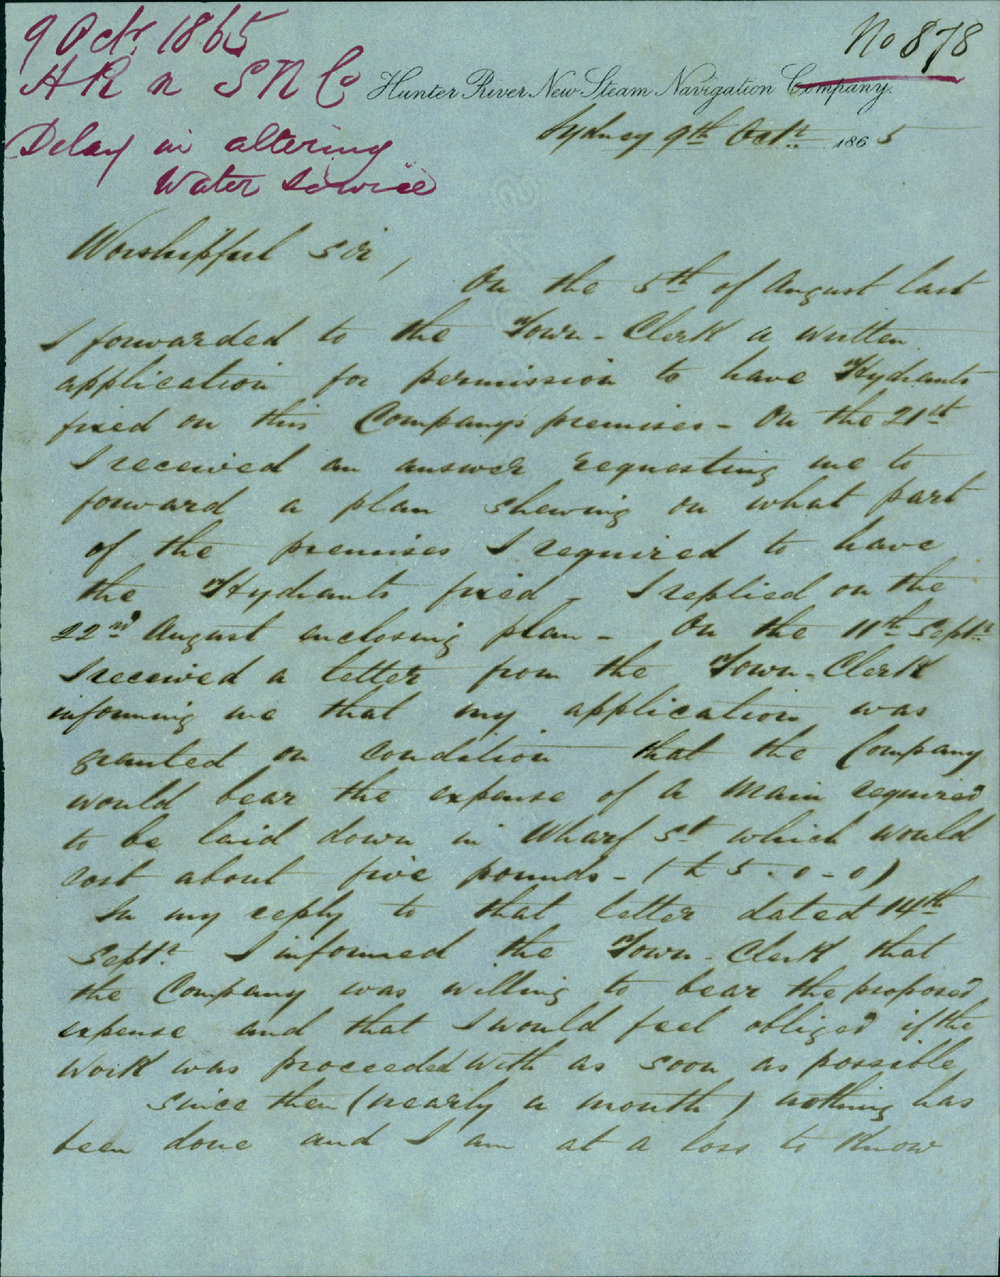 9 Octr 1865
H R N S N Co
Delay in altering
Water service
No 878
Hunter River New Steam Navigation Company.
Sydney 9th Octr. 1865
Worshipful Sir,
On the 5th of August last
I forwarded to the Town-Clerk a written
application for permission to have Hydrants
fixed on this Company's premises - On the 21st
I received an answer requesting me to
forward a plan shewing on what part
of the premises I required to have
the Hydrants fixed - I replied on the
22nd August enclosing plan - On the 11th Septr.
I received a letter from the Town-Clerk
informing me that my application was
granted on condition that the Company
would bear the expense of a Main required
to be laid down in Wharf St which would
cost about five pounds - (£5.0-0)
In my reply to that letter dated 14th
Septr. I informed the Town-Clerk that
the Company was willing to bear the proposed
expense and that I would feel obliged if the
work was proceeded with as soon as possible
Since then (nearly a month) nothing has
been done and I am at a loss to know